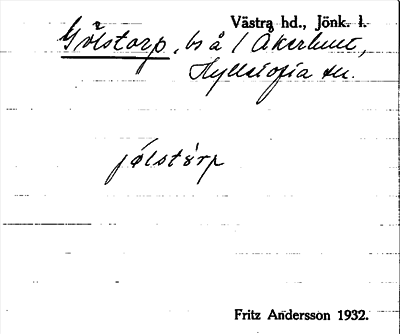 Västra hd., Jönk. l.
Gölstorp, bs å 1 Åkerhult,
Hyllstofta sn.
jölstórp
Fritz Andersson 1932.